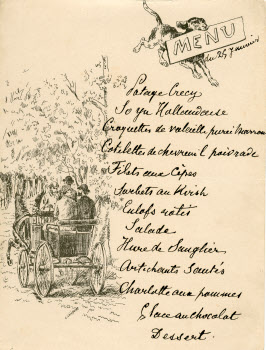 MENU
du 25 Janvier
Potage Crecy
So yu Hollandaise
Croquettes de volaille, purée marron
Cotelettes de chevreuil poivrade
Filets aux Cèpes
Sorbets au Kirsh
rotis
Salade
Hure de Sanglier
Artichauts Sautés
Charlotte aux pommes
Glace au chocolat
Dessert.